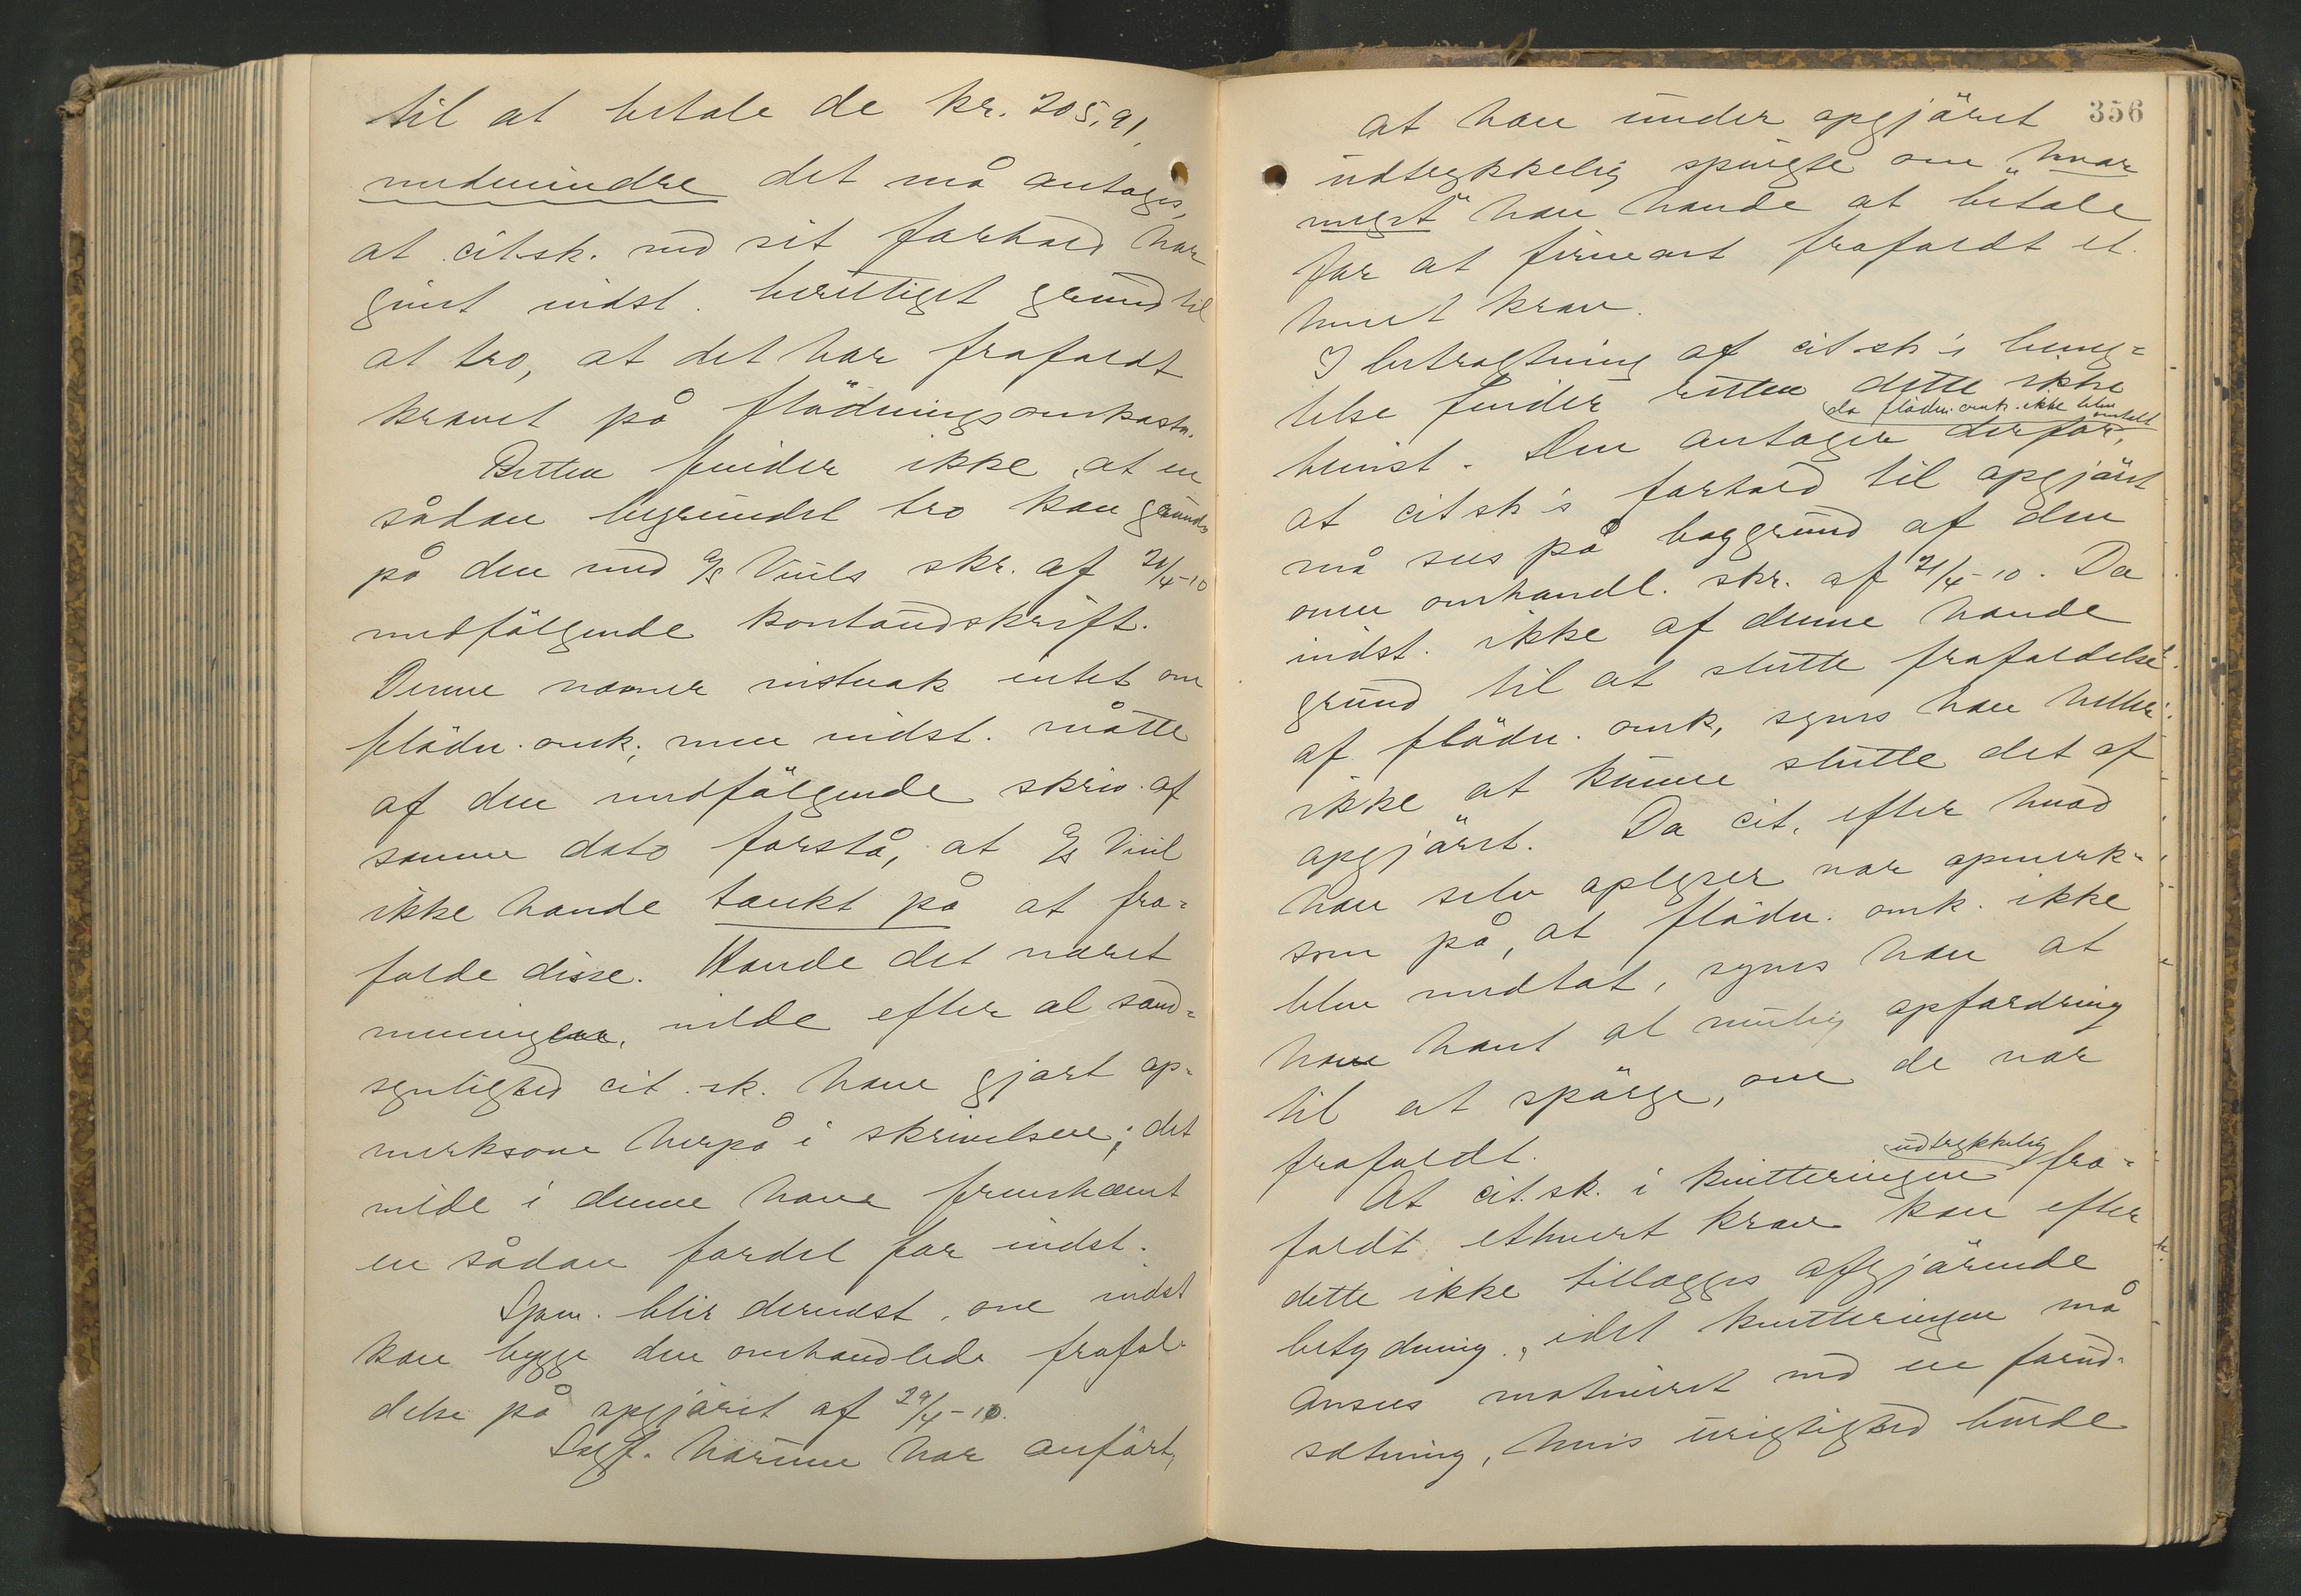 til at betale de kr. 205,91,
medmindre det må antages,
at cit.sk. ved sit forhold har
givet indst. berettiget grund til
at tro, at det har frafaldt
kravet på flådningsomkostn.
Retten finder ikke, at en
sådan begrundet tro kan grundes
på den med A/S Viuls skr. af 20/4-10
medfølgende kontoudskrift.
Denne nævner vistnok intet om
flådn. omk., men indst. måtte
af den medfølgende skriv. af
samme dato forstå, at A/S Viul
ikke havde tænkt på at fra-
falde disse. Havde det været
meningen, vilde efter al sand-
synlighed cit.sk. have gjort op-
merksom herpå i skrivelsen; det
vilde i denne have fremhævet
en sådan fordel for indst.
Spm. blir dernæst, om indst
kan bygge den omhandlede frafal-
delse på opgjøret af 29/4-10.
Sagf. har anført,
356
at han under opgjøret
udtrykkelig spurgte om "hvor
meget" han havde at betale
for at firmaet frafaldt et-
hvert krav.
I betragtning af cit.sk's beneg-
telse finder retten dette ikke
da flådn. omk. ikke blev omtalt
bevist. Den antager derfor,
at cit sk's forhold til opgjøret
må sees på baggrund af den
ovenomhandl. skr. af 21/4-10. Da
indst. ikke af denne havde
grund til at slutte frafaldelse
af flådn. omk, synes han heller
ikke at kunne slutte det af
opgjøret. Da cit. efter hvad
han selv oplyser var opmerk-
som på, at flådn. omk. ikke
blev medtat, synes han at
have havt al mulig opfordring
til at spørge, om de var
frafaldt.
udtrykkelig
At cit.sk. i kvitteringen fra-
faldt ethvert krav kan efter
dette ikke tillægges afgjørende
betydning, idet kvitteringen må
ansees motiveret ved en forud-
sætning, hvis urigtighed burde